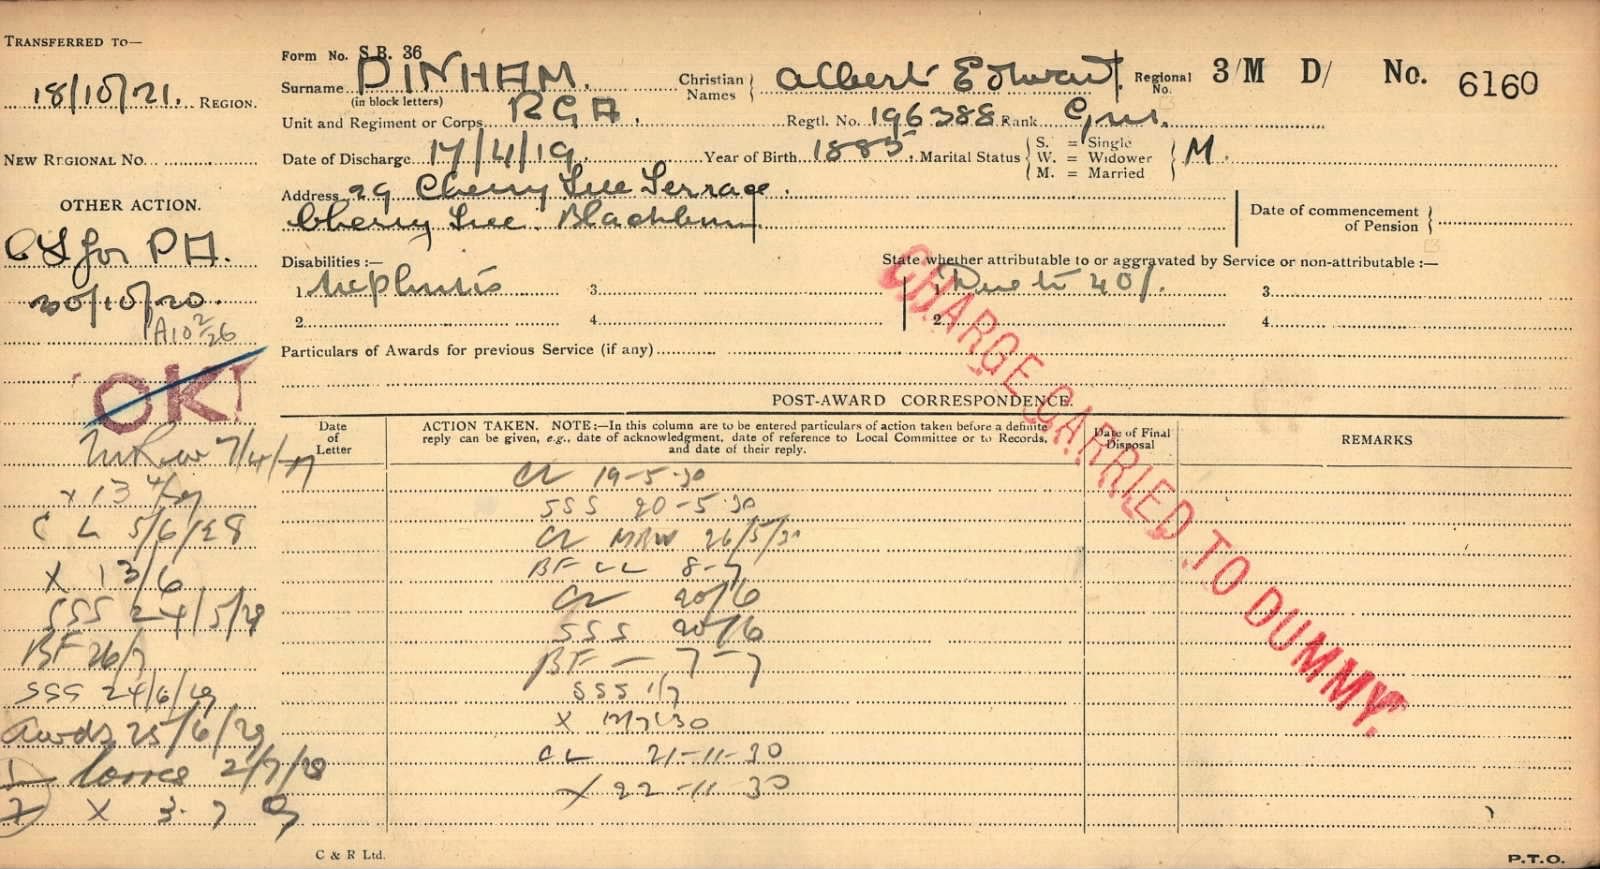 TRANSFERRED TO—
18/10/21. REGION.
NEW REGIONAL NO.
OTHER ACTION.
for PA.
30/10/20.
A10 2/26
OK
7/4/
x 13
C L 5/6/28
X 13/6
SSS 24/5/29
BF 26/7
SSS 24/6/29
Awds 25/6/29
2/7/29
X 3. 7
Form No. S.B. 36
Surname DINHAM. Christian Names Albert Edward. Regional No. 3/M D/ No. 6160
(in block letters)
Unit and Regiment or Corps RGA. Regtl. No. 196388 Rank Gnr.
Date of Discharge 17/4/19. Year of Birth 1885. Marital Status S. = Single W. = Widower M. = Married M.
Address 29 Cherry Tree Terrace.
Cherry Tree Blackburn
Date of commencement of Pension
Disabilities :— State whether attributable to or aggravated by Service or non-attributable :—
1. Nephritis 3. 1. Due to 40%. 3.
2. 4. 2. 4.
Particulars of Awards for previous Service (if any)
POST-AWARD CORRESPONDENCE.
Date of Letter
ACTION TAKEN. NOTE:—In this column are to be entered particulars of action taken before a definite
reply can be given, e.g., date of acknowledgment, date of reference to Local Committee or to Records,
and date of their reply.
Date of Final Disposal
REMARKS
CL 19-5-30
SSS 20-5-30
CL 26/5/30
BF CL 8-7
CL 20/6
SSS 20/6
BF — 7-7
SSS 1/7
X 12/7/30
CL 21-11-30
X 22-11-30
CHARGE CARRIED TO DUMMY.
C & R Ltd.
P.T.O.